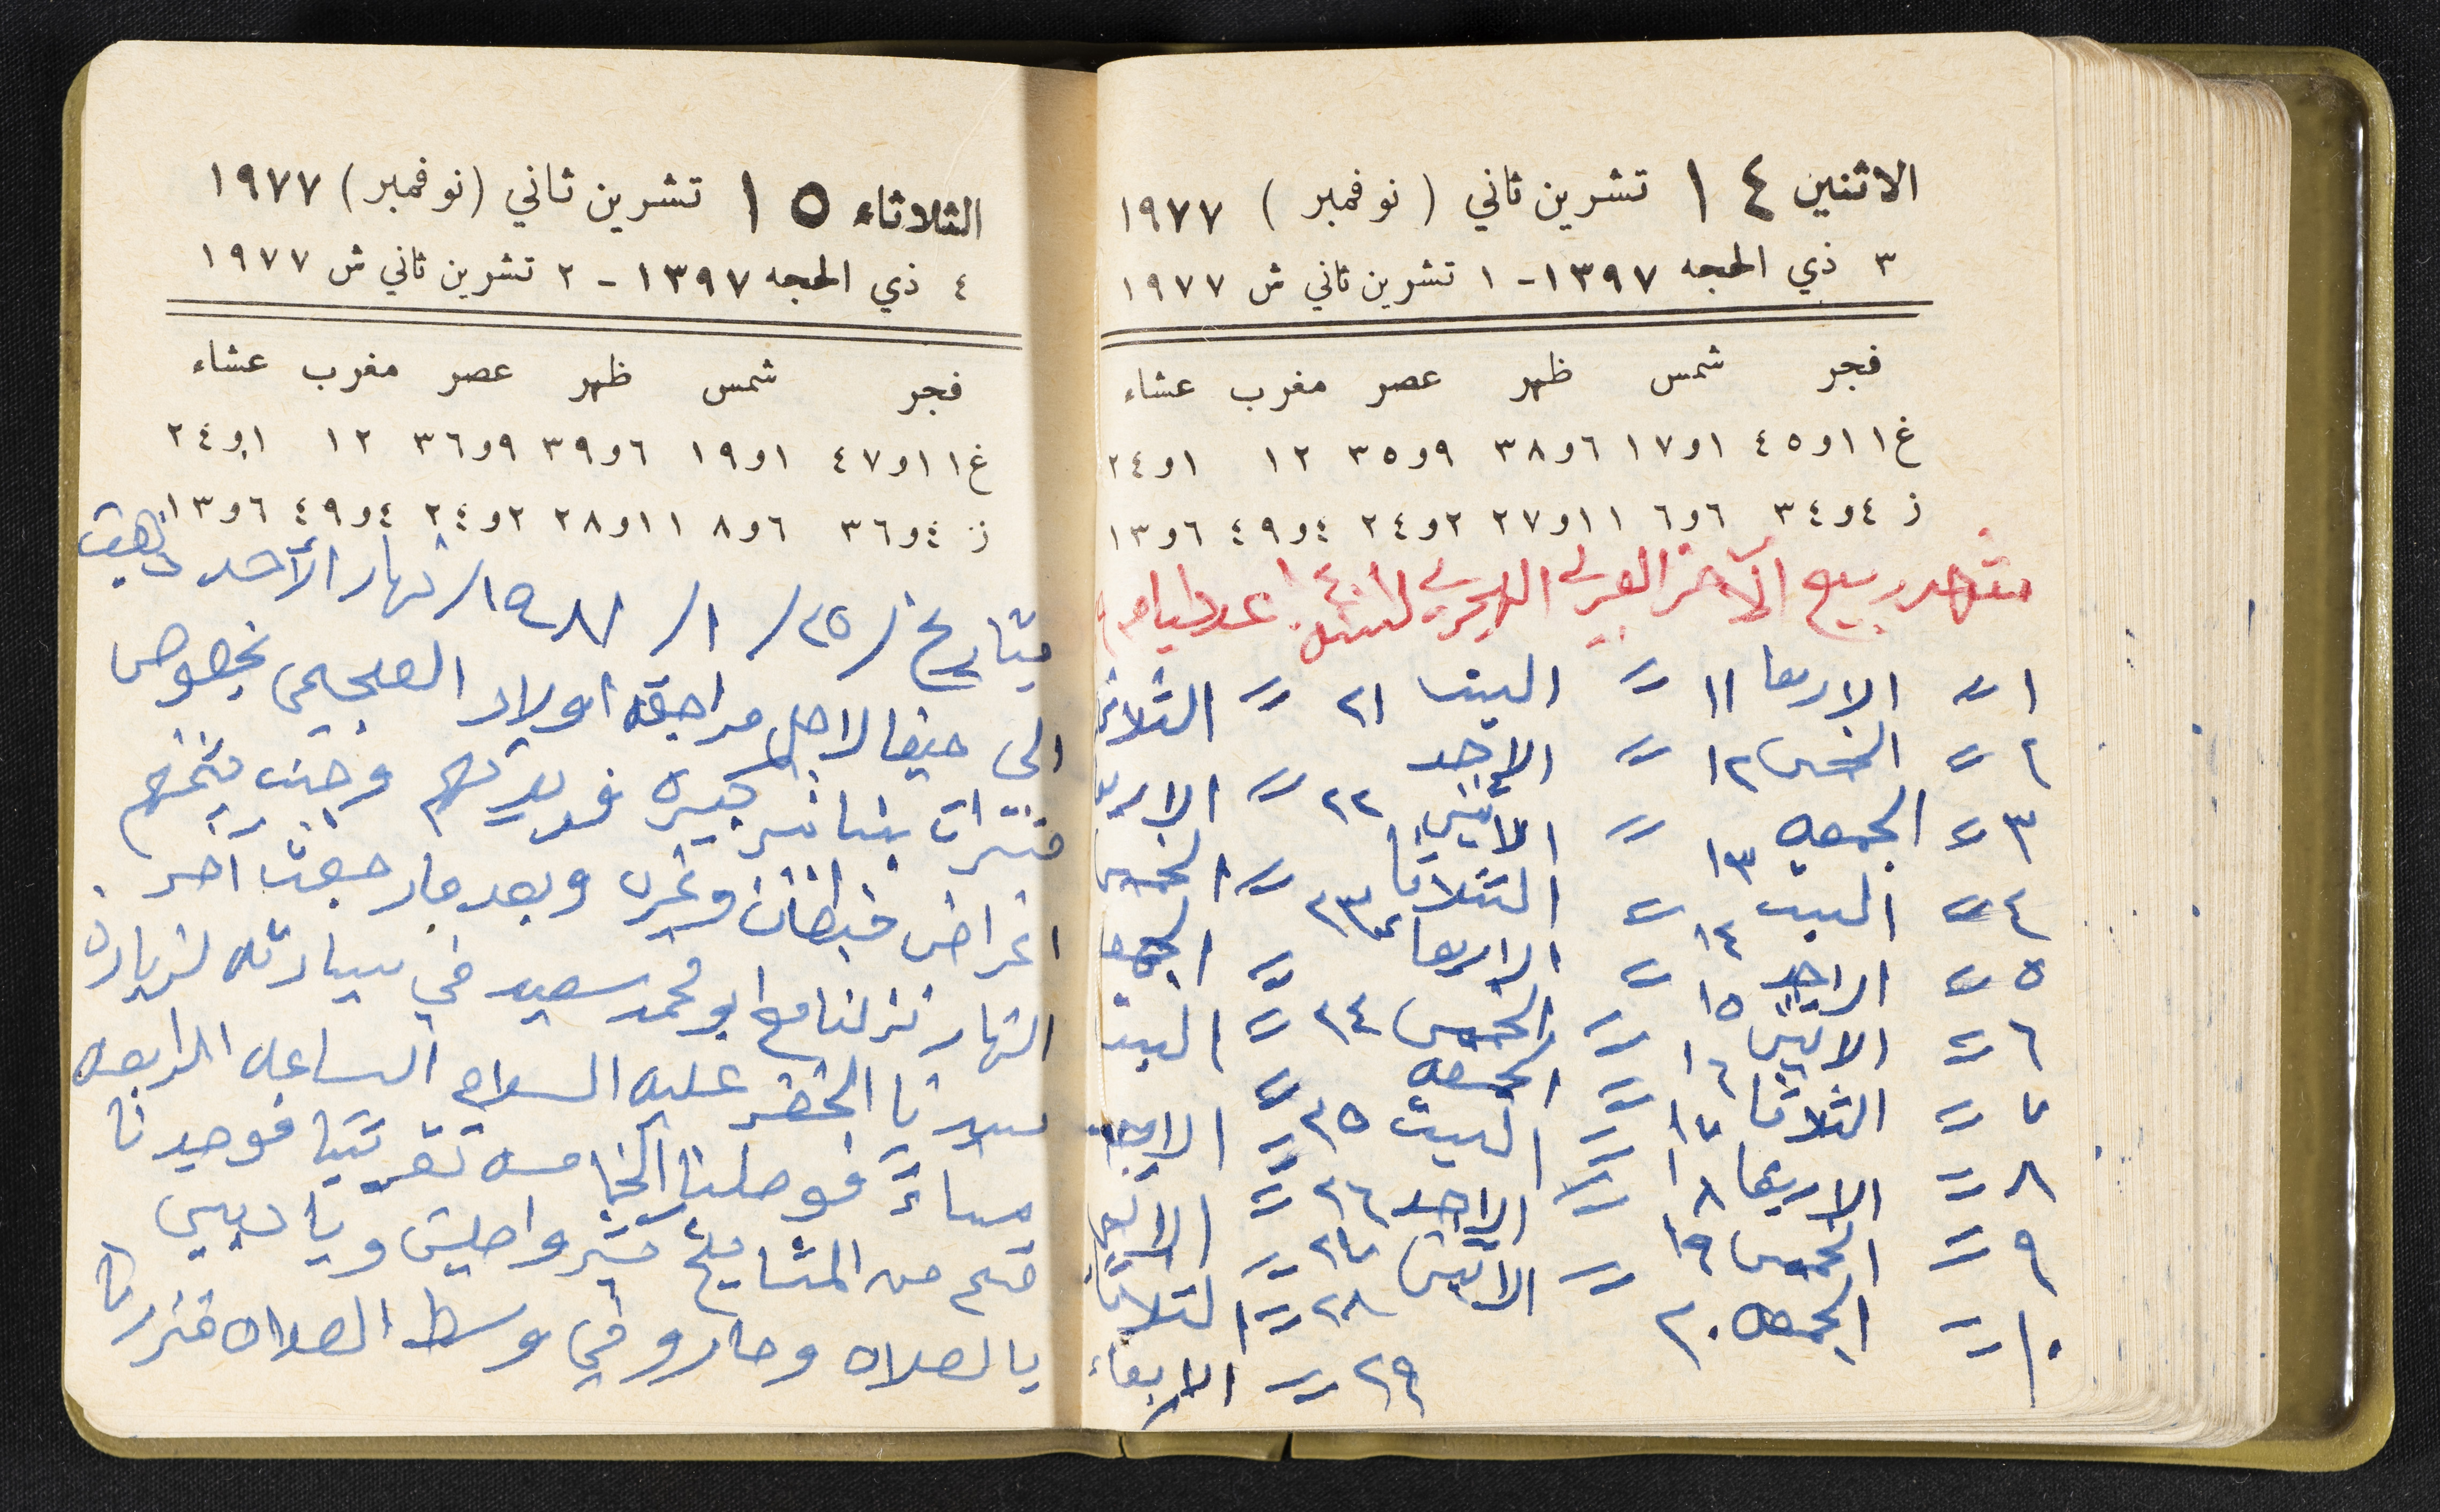 الاثنين ١٤ تشرين ثاني (نوفمبر) ١٩٧٧
٣ ذي الحجه ١٣٩٧ - ١ تشرين ثاني ش ١٩٧٧
فجر شمس ظهر عصر مغرب عشاء
غ ١١و٤٥ ١و١٧ ٦و٣٨ ٩و٣٥ ١٢ ١و٢٤
ز ٤و٣٤ ٦و٦ ١١و٢٧ ٢و٢٤ ٤و٤٩ ٦و١٣
شهر ربيع الآخر العربي الهجري لسنة ١٤٠١ عدد ايام
١ = الاربعا ١١ = السبت ٢١ = الثلاثا
٢ = الخمس ١٢ = الاحد ٢٢ = الاربعا
٣ = الجمعه ١٣ = الاثنين ٢٣ = الخمس
٤ = السبت ١٤ = الثلاثا = الجمعه
٥ = الاحد ١٥ = الاربعا ٢٤ = السبت
٦ = الاثنين ١٦ = الخمس ٢٥ = الاحد
٧ = الثلاثا ١٧ = الجمعه ٢٦ = الاثنين
٨ = الاربعا ١٨ = السبت ٢٧ = الثلاثا
٩ = الخمس ١٩ = الاحد ٢٨ =
١٠ = الجمعه ٢٠ = الاثنين ٢٩ = الاربعاء
الثلاثاء ١٥ تشرين ثاني (نوفمبر) ١٩٧٧
٤ ذي الحجه ١٣٩٧ - ٢ تشرين ثاني ش ١٩٧٧
فجر شمس ظهر عصر مغرب عشاء
غ ١١و٤٧ ١و١٩ ٦و٣٩ ٩و٣٦ ١٢ ١و٢٤
ز ٤و٣٦ ٦و٨ ١١و٢٨ ٢و٢٤ ٤و٤٩ ٦و١٣
بتاريخ / ٢٥ / ١ / ١٩٨١ / نهار الأحد ذهبت
الى حيفا لاجل مراجقة اولاد العجمي بخصوص
كبيره وجبت
اغراض وبعد ما رجعت آخر
النهار نزلنا مع ابو محمد سعيد في سيارته لزيارة
سيدنا الخضر عليه السلام الساعه الرابعه
مساءً فوصلنا الخامسه تقريبًا فوجدنا
قسم من المشايخ
بالصلاه وصارو في وسط الصلاه فزرنا